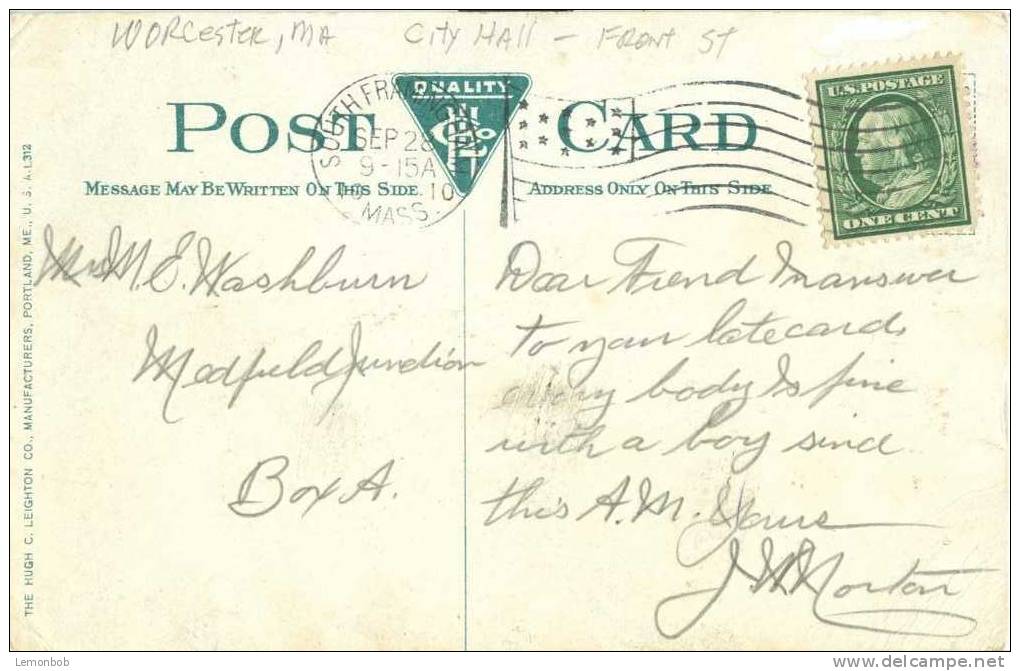 Worcester, MA City Hall - Front St
POST CARD
QUALITY
HCL Co
SOUTH FRAMINGHAM
SEP 28
9-15A
10
MASS.
U.S. POSTAGE
ONE CENT
MESSAGE MAY BE WRITTEN ON THIS SIDE. ADDRESS ONLY ON THIS SIDE
Mrs M. E. Washburn
Medfield Junction
Box A.
Dear Frend In answer
to your late card,
every body Is fine
with a boy since
this A.M. Yours
J. W. Morton
THE HUGH C. LEIGHTON CO., MANUFACTURERS, PORTLAND, ME., U. S. A. L312
Lemonbob
www.delcampe.net